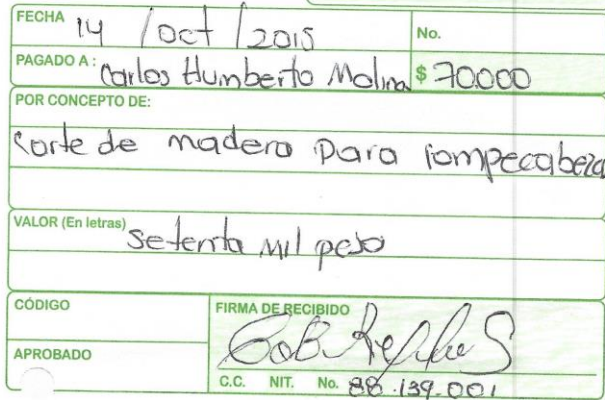 FECHA 14 / oct / 2015 No.
PAGADO A: Carlos Humberto Molina $ 70000
POR CONCEPTO DE:
Corte de madera para rompecabeza
VALOR (En letras) setenta mil peso
CÓDIGO FIRMA DE RECIBIDO
APROBADO
C.C. NIT. No. 88.139.001